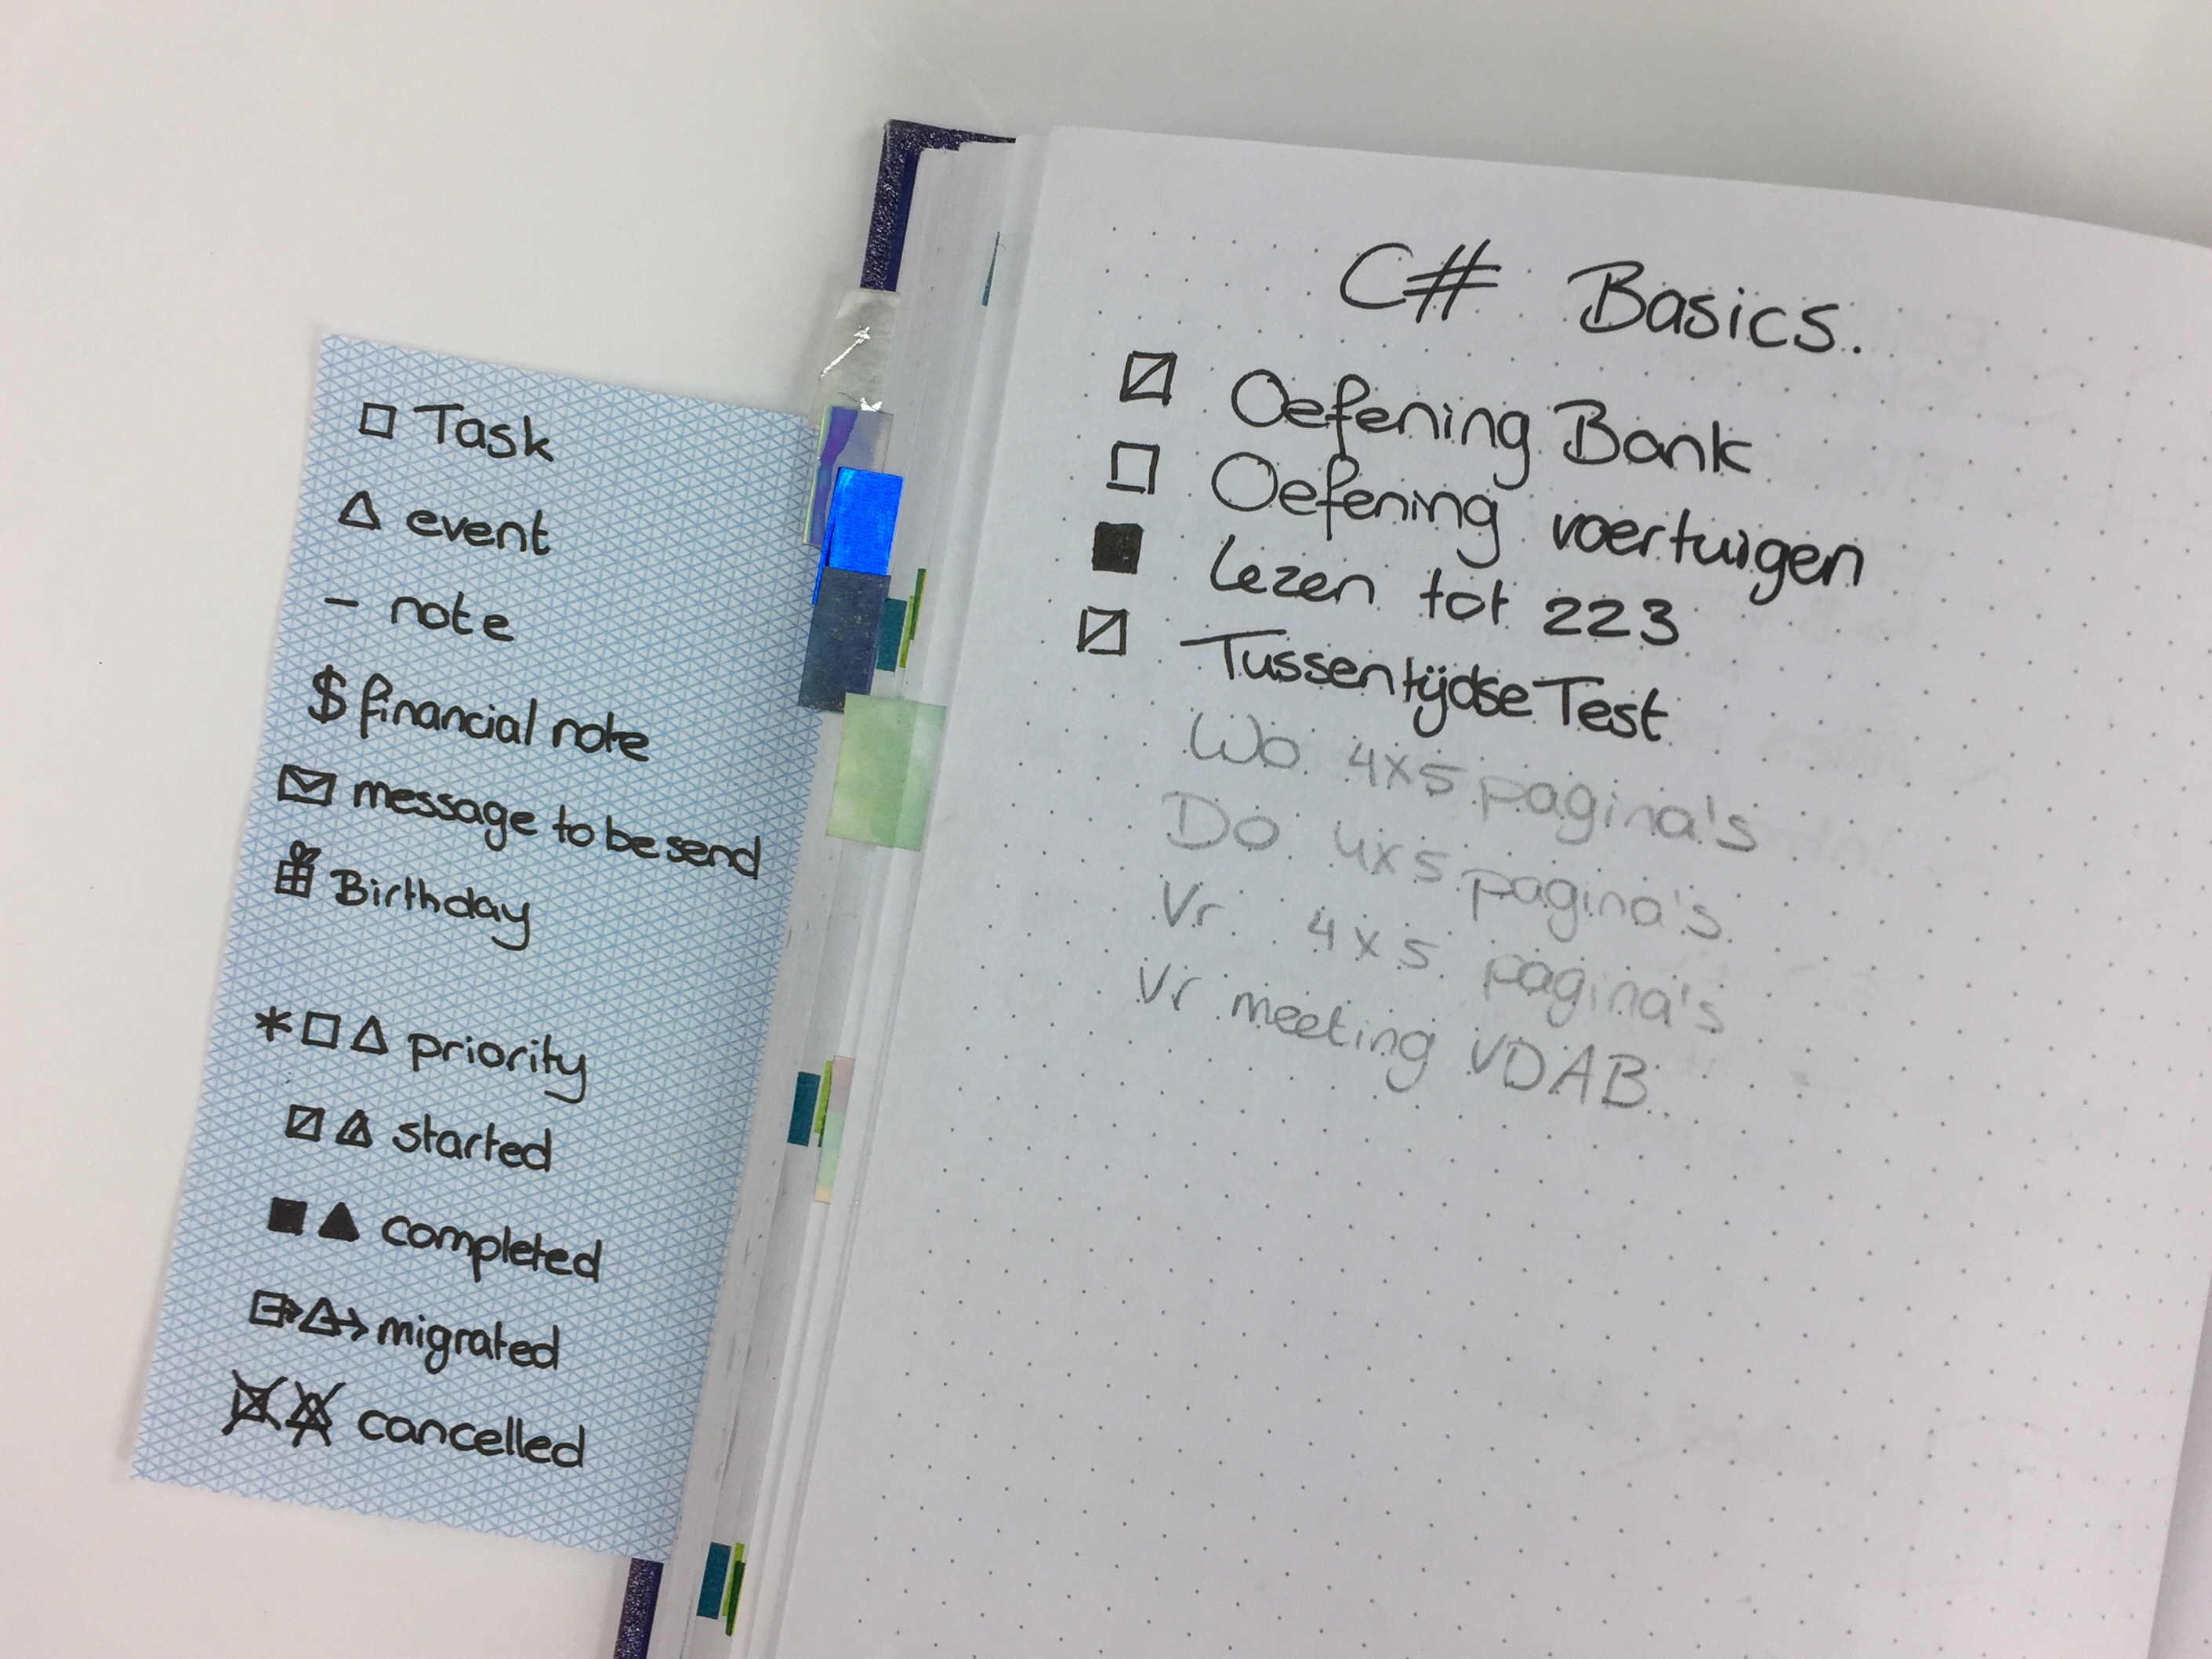 Task
event
- note
$ financial note
message to be send
Birthday
* priority
started
completed
migrated
cancelled
C# Basics.
Oefening Bank
Oefening voertuigen
Lezen tot 223
Tussentijdse Test
Wo 4x5 pagina's
Do 4x5 pagina's
Vr 4x5 pagina's
Vr meeting VDAB